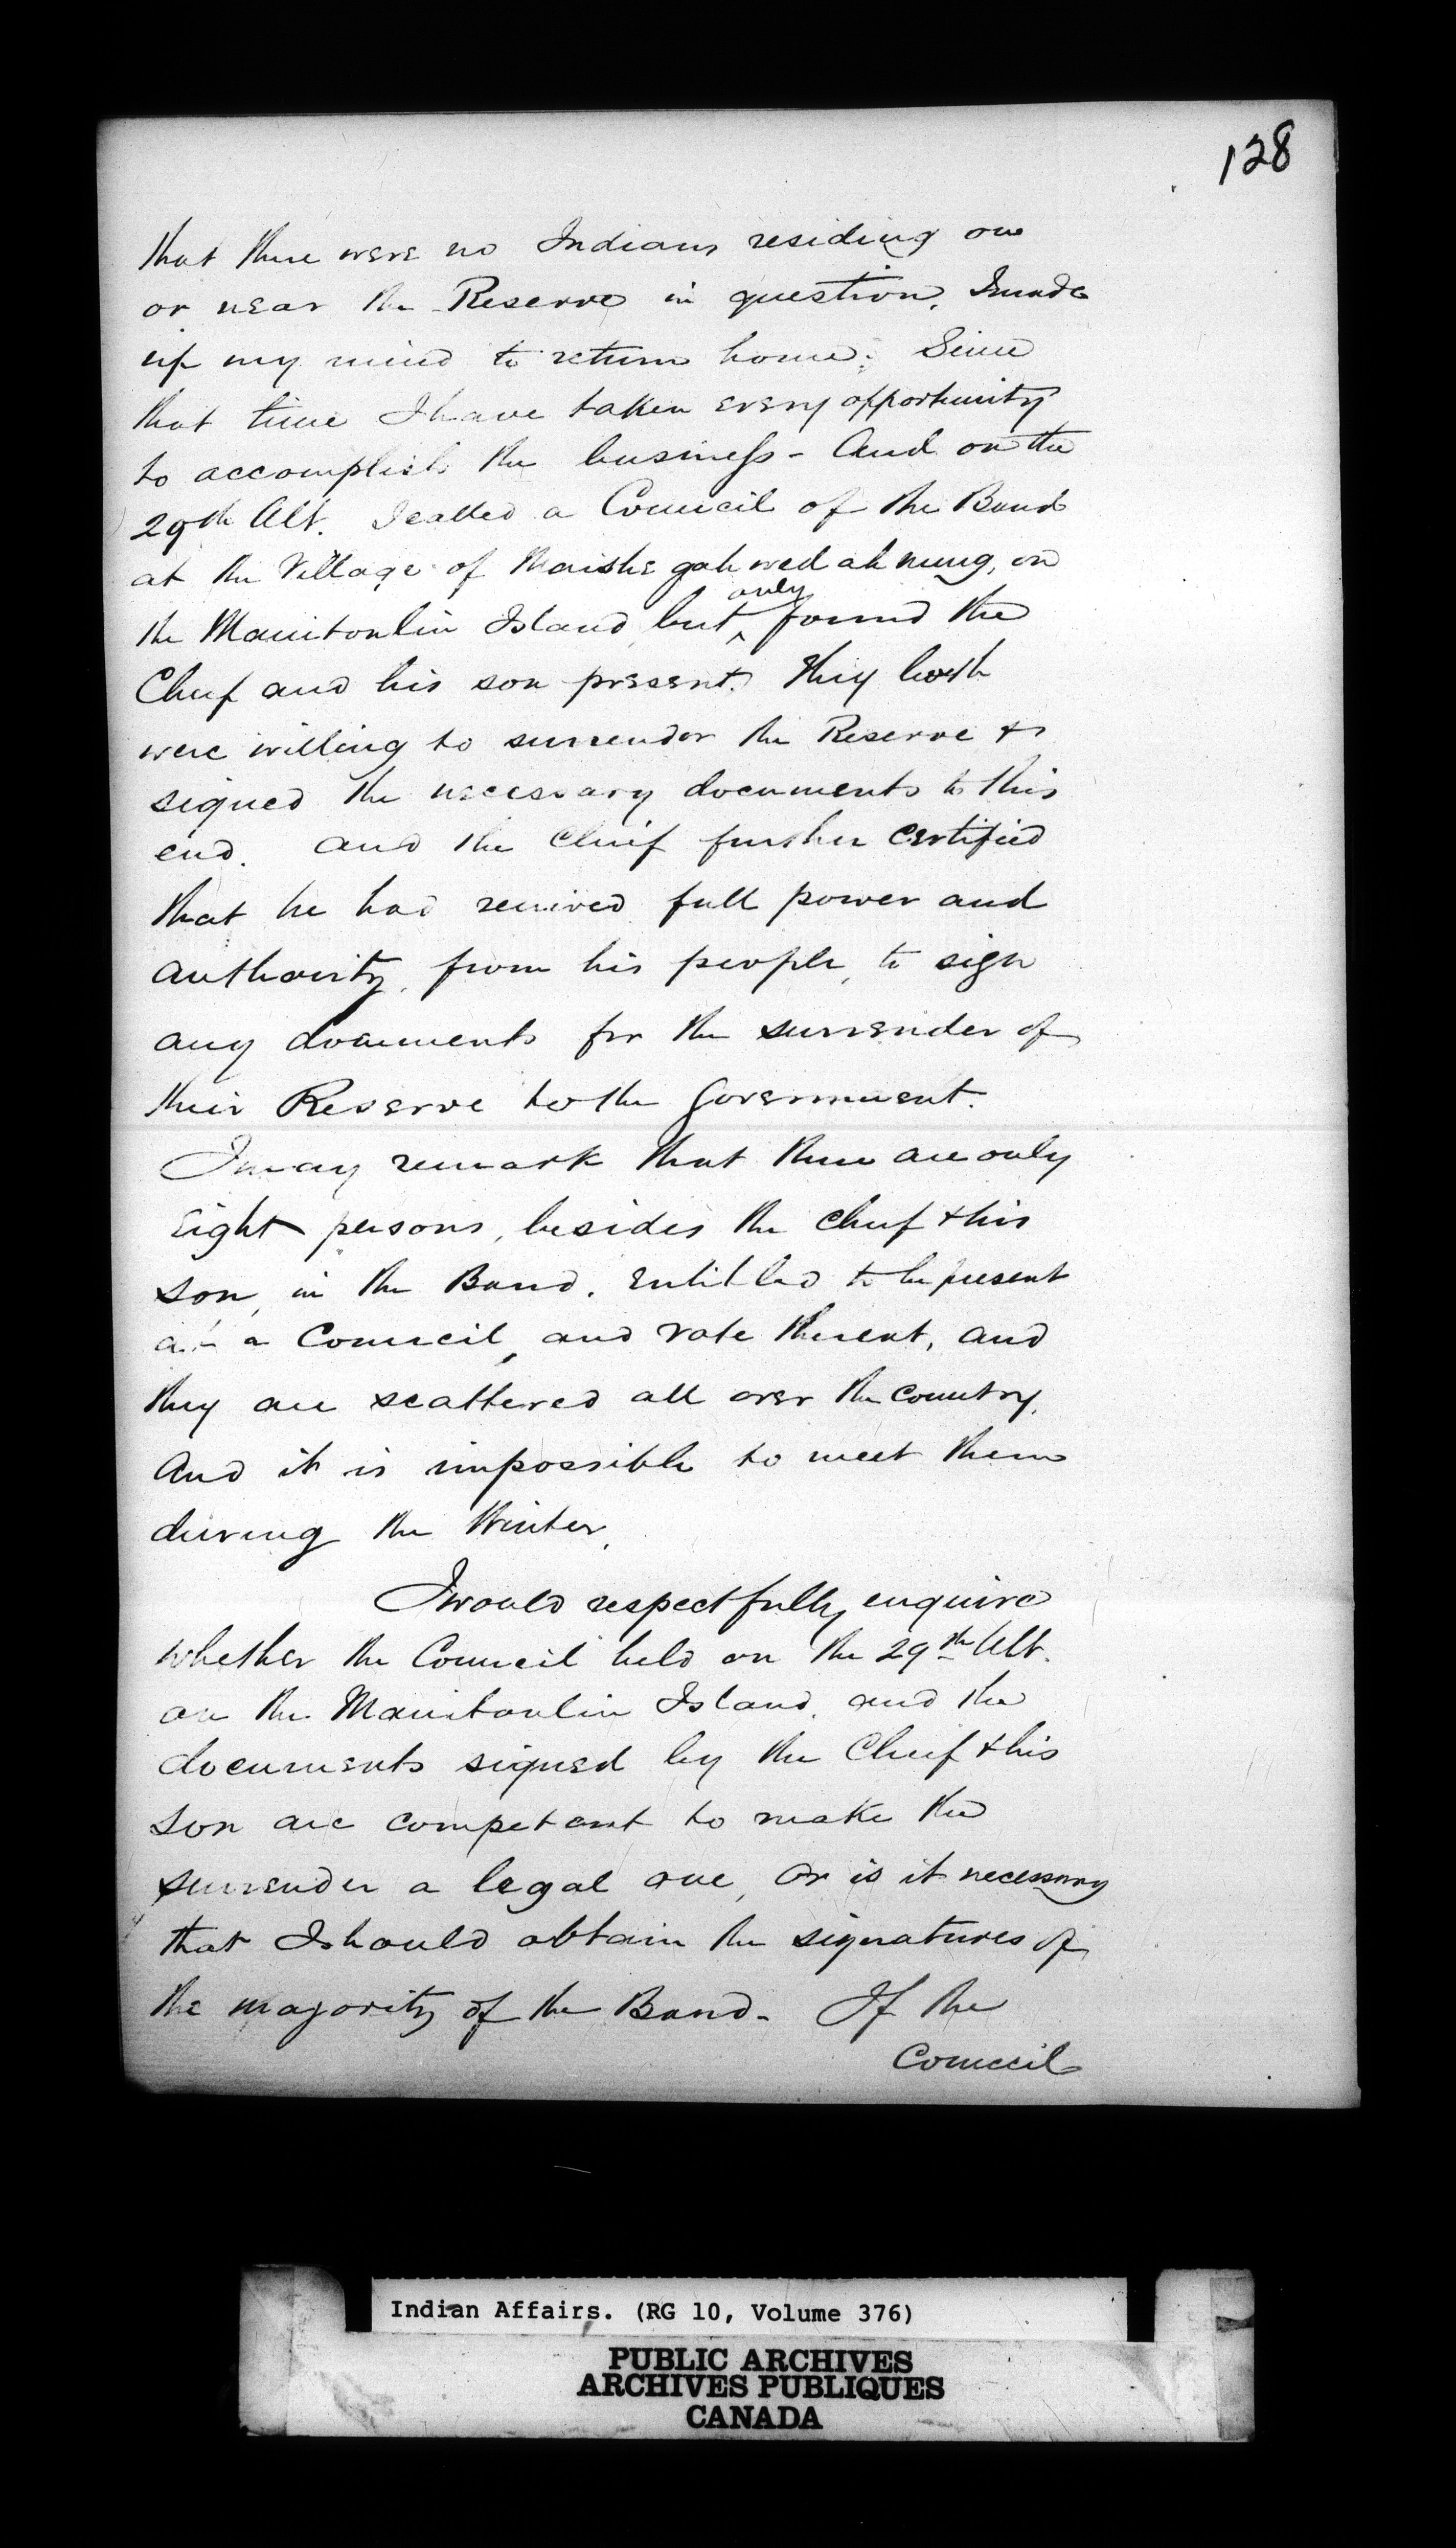 128
that there were no Indians residing on
or near the Reserve in question, I made
up my mind to return home. Since
that time I have taken every opportunity
to accomplish the business - And on the
29th Ult. I called a Council of the Band
at the Village of Maishe gah wed ah nung, on
the Manitoulin Island, but ^only found the
Chief and his son present. They both
were willing to surrender the Reserve &
signed the necessary documents to this
end. And the Chief further certified
that he had received full power and
authority, from his people, to sign
any documents for the surrender of
their Reserve to the Government.
I may remark that there are only
Eight persons, besides the Chief & his
son, in the Band. Entitled to be present
at a Council, and vote thereat, and
they are scattered all over the country.
And it is impossible to meet them
during the Winter.
I would respectfully enquire
whether the Council held on the 29th Ult.
on the Manitoulin Island, and the
documents signed by the Chief & his
son are competant to make the
surrender a legal one, or is it necessary
that I should obtain the signatures of
the majority of the Band - If the
Council
Indian Affairs. (RG 10, Volume 376)
PUBLIC ARCHIVES
ARCHIVES PUBLIQUES
CANADA